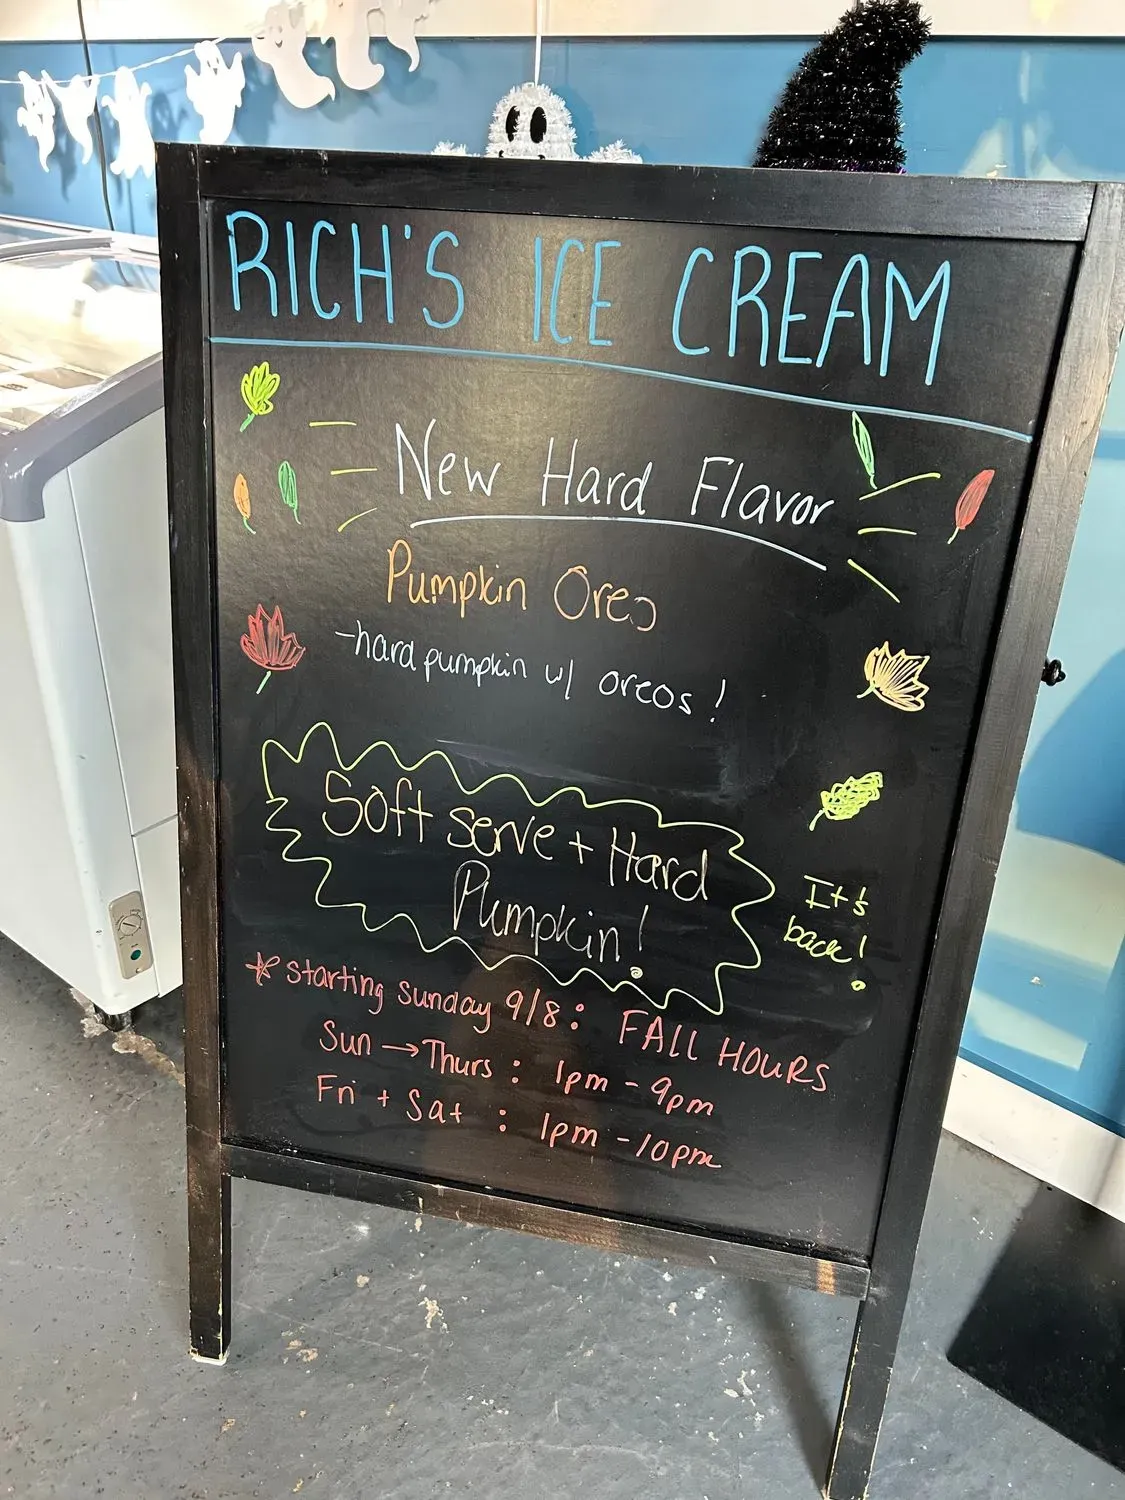 RICH'S ICE CREAM
New Hard Flavor
Pumpkin Oreo
-hard pumpkin w/ oreos!
Soft serve + Hard
Pumpkin!
It's
back!
* starting sunday 9/8: FALL HOURS
Sun → Thurs: 1pm - 9pm
Fri + Sat : 1pm - 10pm